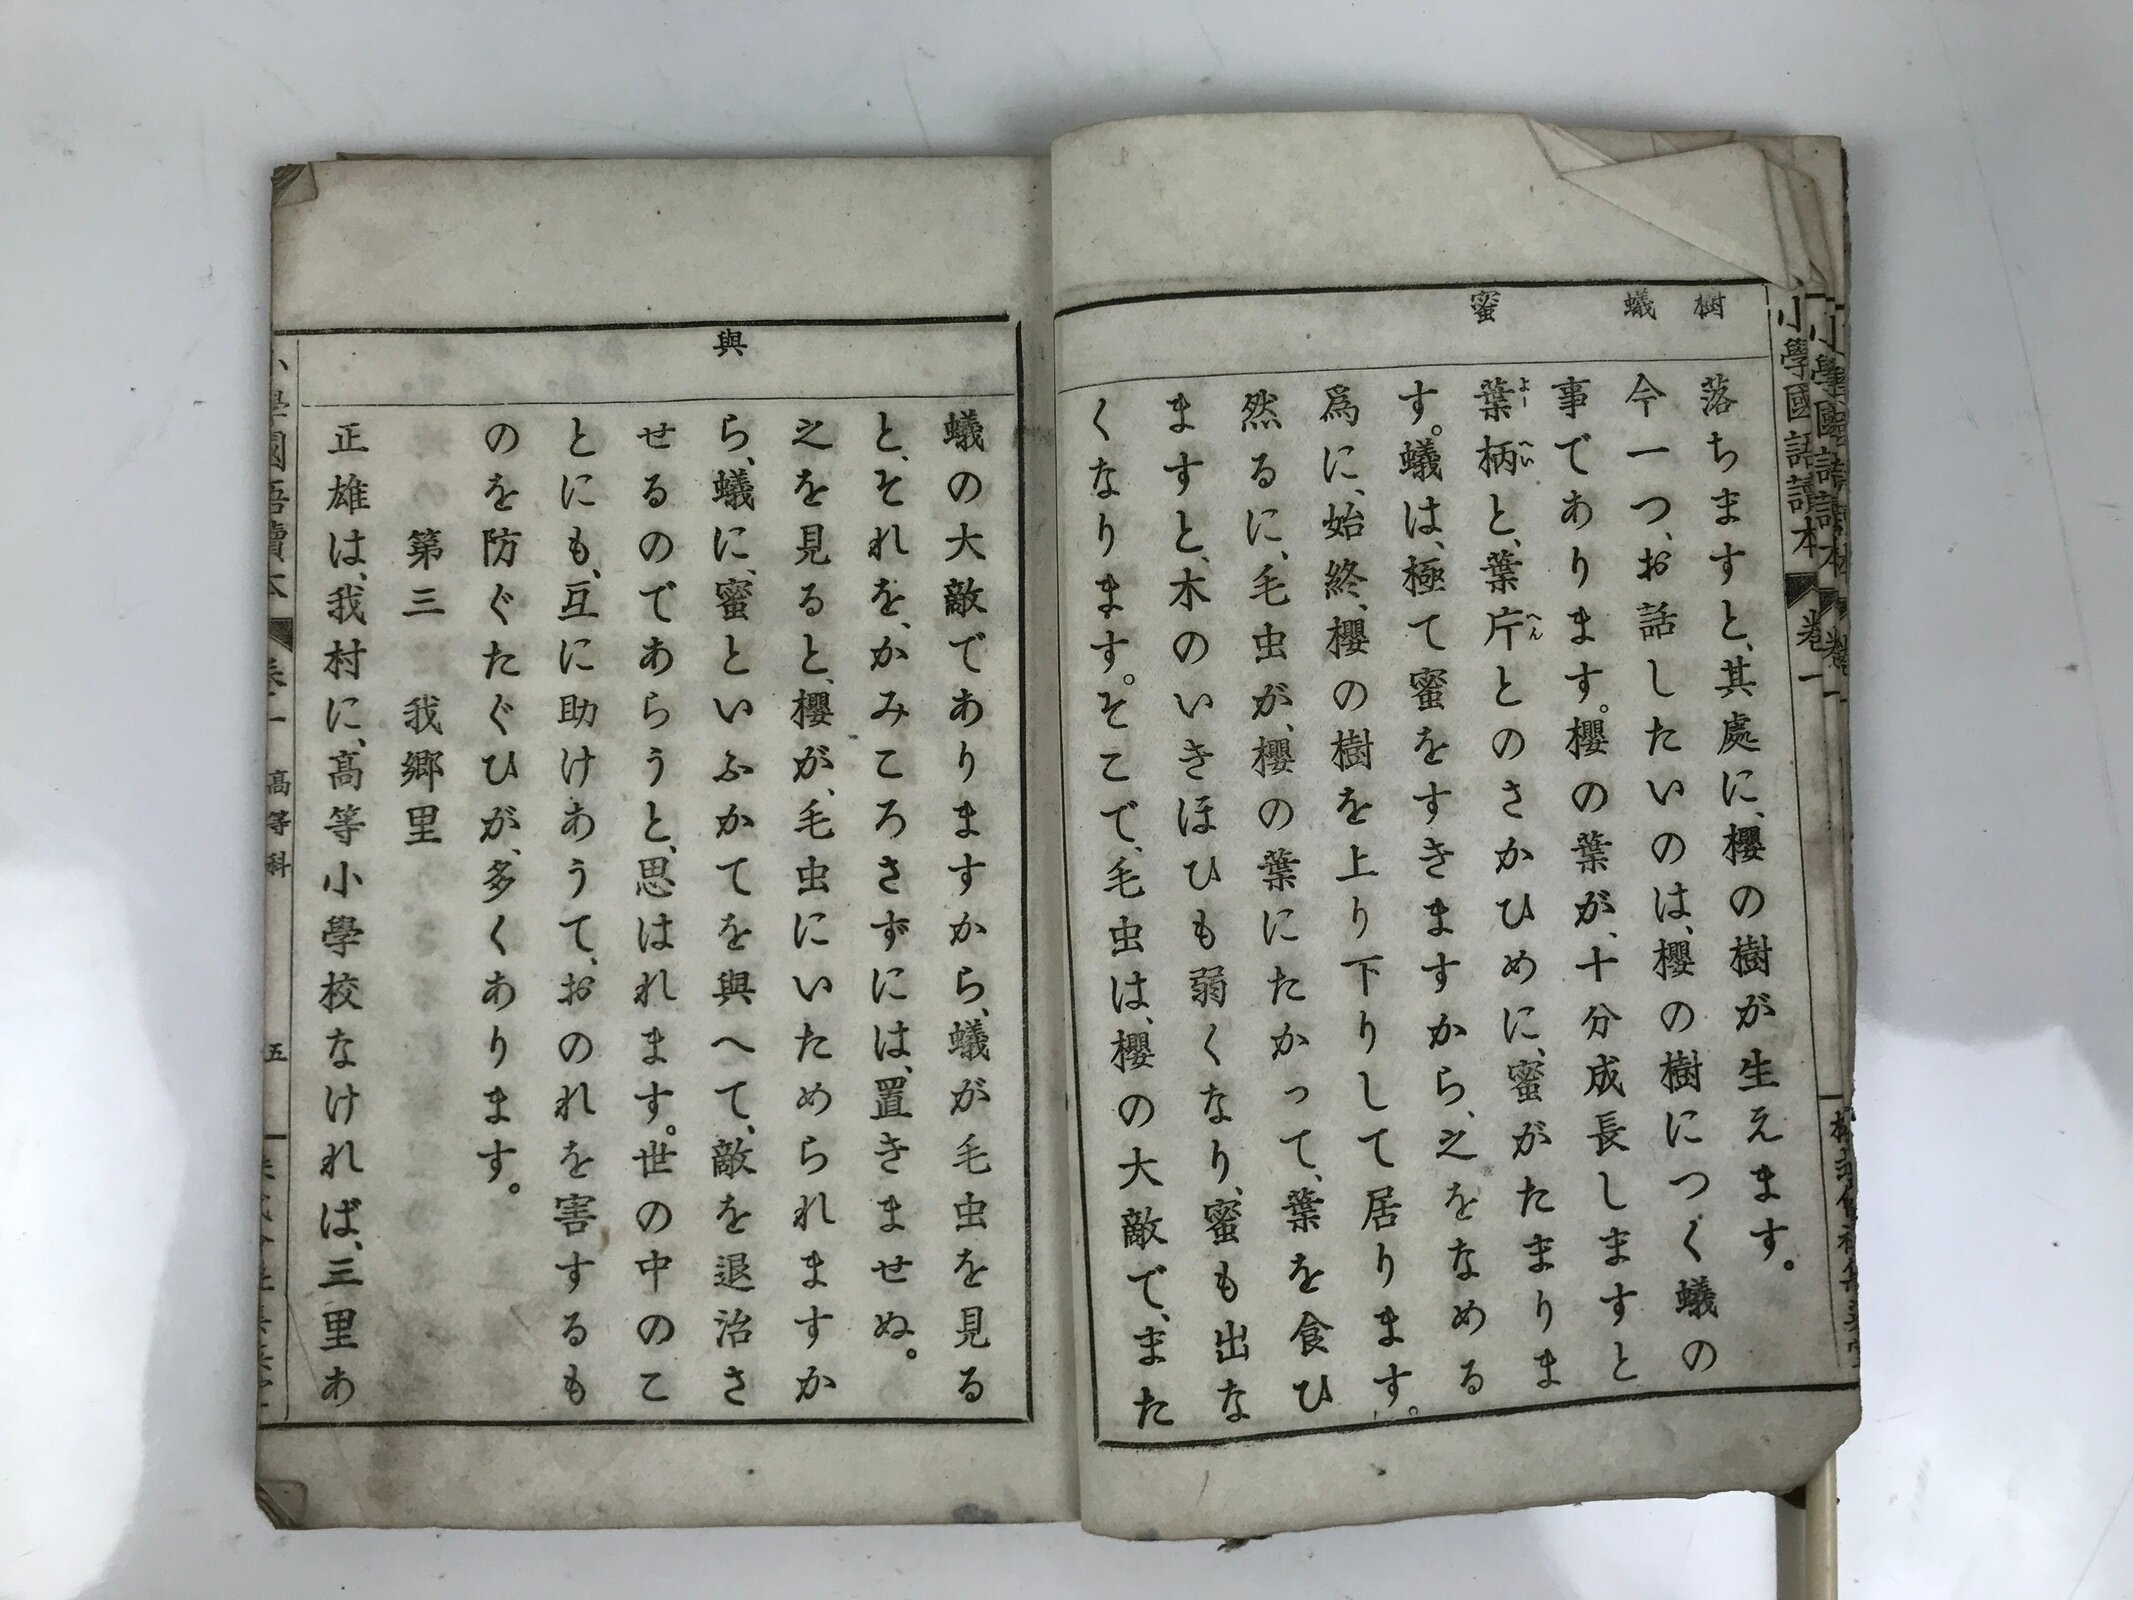 小學國語讀本 卷一
樹
蟻
蜜
落ちますと、其處に、櫻の樹が生えます。
今一つ、お話したいのは、櫻の樹につく蟻の
事であります。櫻の葉が、十分成長しますと
葉柄と、葉片とのさかひめに、蜜がたまりま
よーへい へん
す。蟻は、極て蜜をすきますから、之をなめる
爲に、始終、櫻の樹を上り下りして居ります。
然るに、毛虫が、櫻の葉にたかって、葉を食ひ
ますと、木のいきほひも弱くなり、蜜も出な
くなります。そこで、毛虫は、櫻の大敵で、また
與
蟻の大敵でありますから、蟻が毛虫を見る
と、それを、かみころさずには、置きませぬ。
之を見ると、櫻が、毛虫にいためられますか
ら、蟻に、蜜といふかてを與へて、敵を退治さ
せるのであらうと、思はれます。世の中のこ
とにも、互に助けあうて、おのれを害するも
のを防ぐたぐひが、多くあります。
第三 我鄉里
正雄は、我村に、高等小學校なければ、三里あ
小學國語讀本 卷一 高等科 五